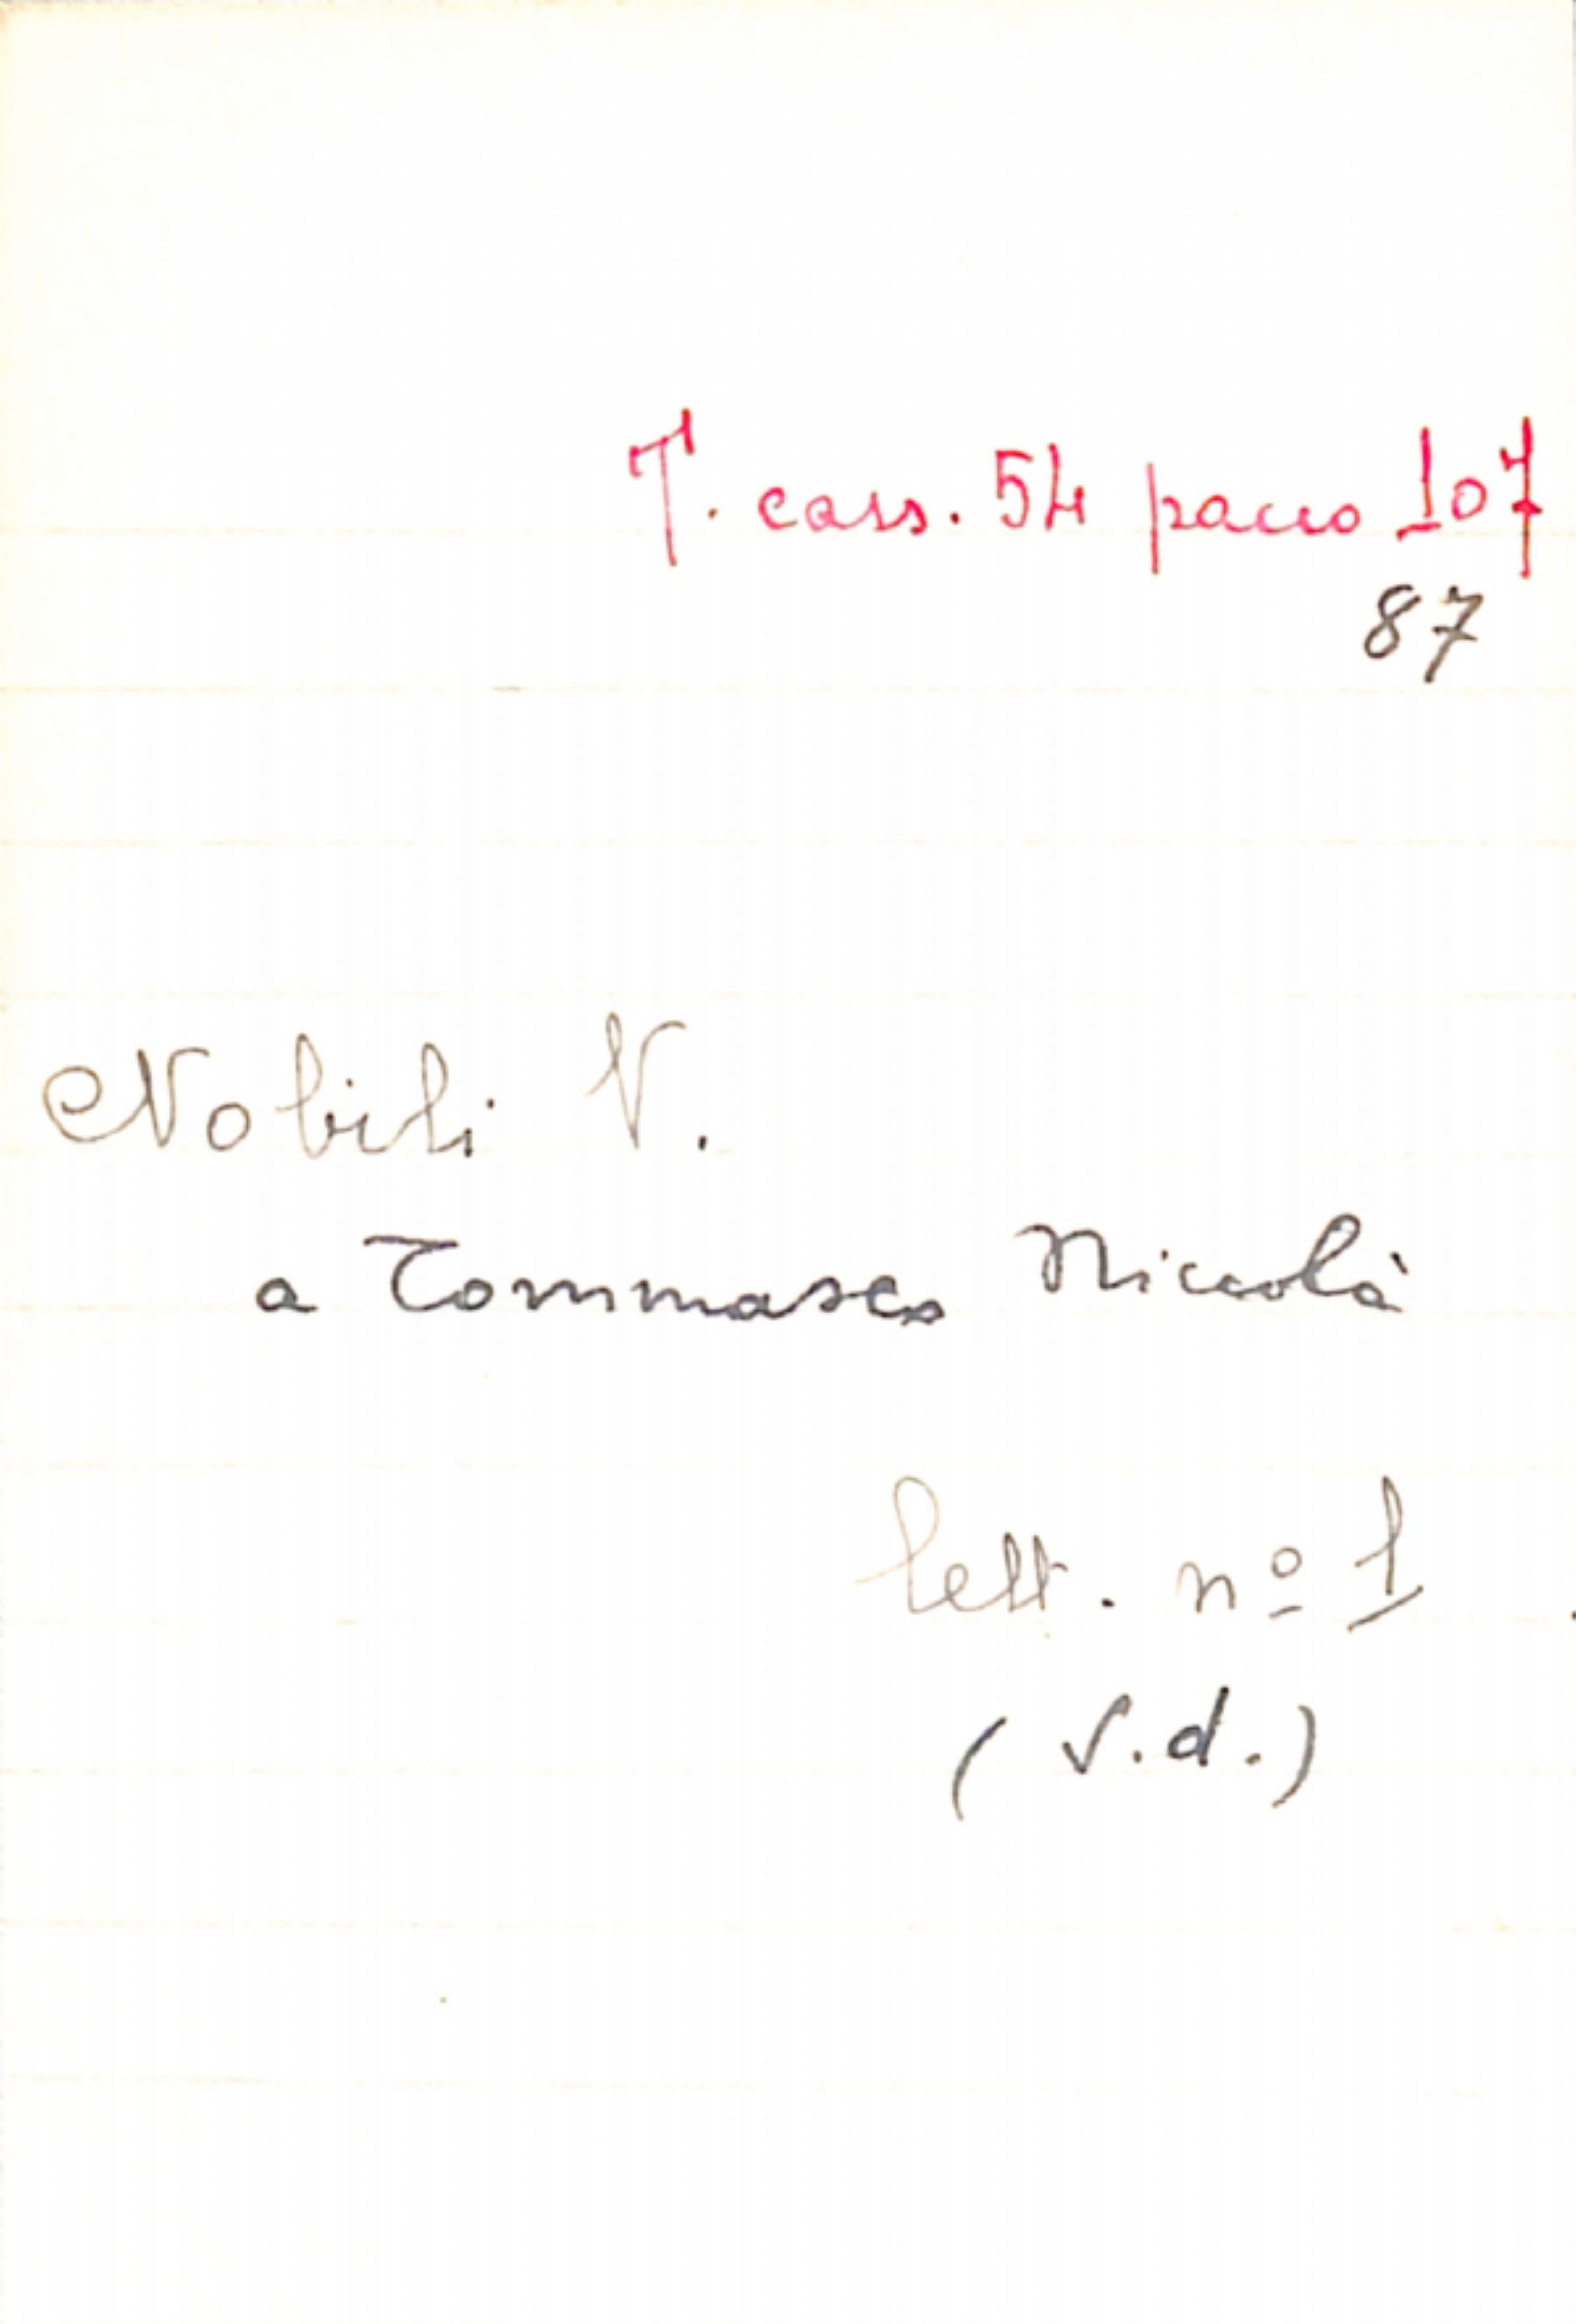 T. cass. 54 pacco 107
87
Nobili V.
a Tommaseo Niccolò
lett. nº 1
(s.d.)